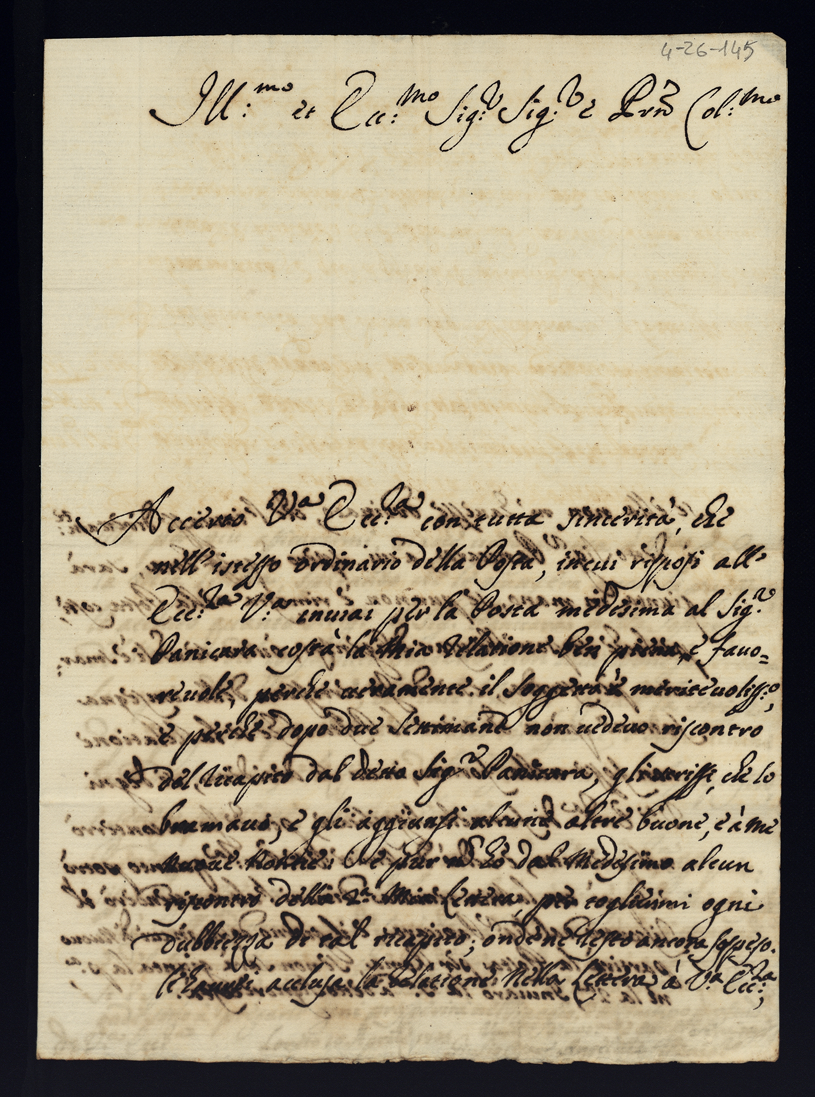 4-26-145
Ill:mo et Ecc:mo Sig:r Sig:r e Prñ Col:mo
Accerto V.a Ecc:za con tutta sincerità, che
nell'istesso ordinario della Posta, in cui risposi all'
Ecc:za V.a inviai per la Posta medesima al Sig:r
Panicara costà la mia relatione ben piena, e favo=
revole, perche veramente il soggetto è meritevoliss:o,
e perche dopo due settimane non vedevo riscontro
del ricapito dal detto Sig:r Panicara, gli scrissi, che lo
bramavo, e gli aggiunsi alcune altre buone, e à me
nuove notitie: e pur hò dal medesimo alcun
riscontro della 2.a mia lettera per togliermi ogni
dubbiezza di tal ricapito; onde ne resto ancora sospeso.
acclusa la relatione nella lettera à V.a Ecc:za,